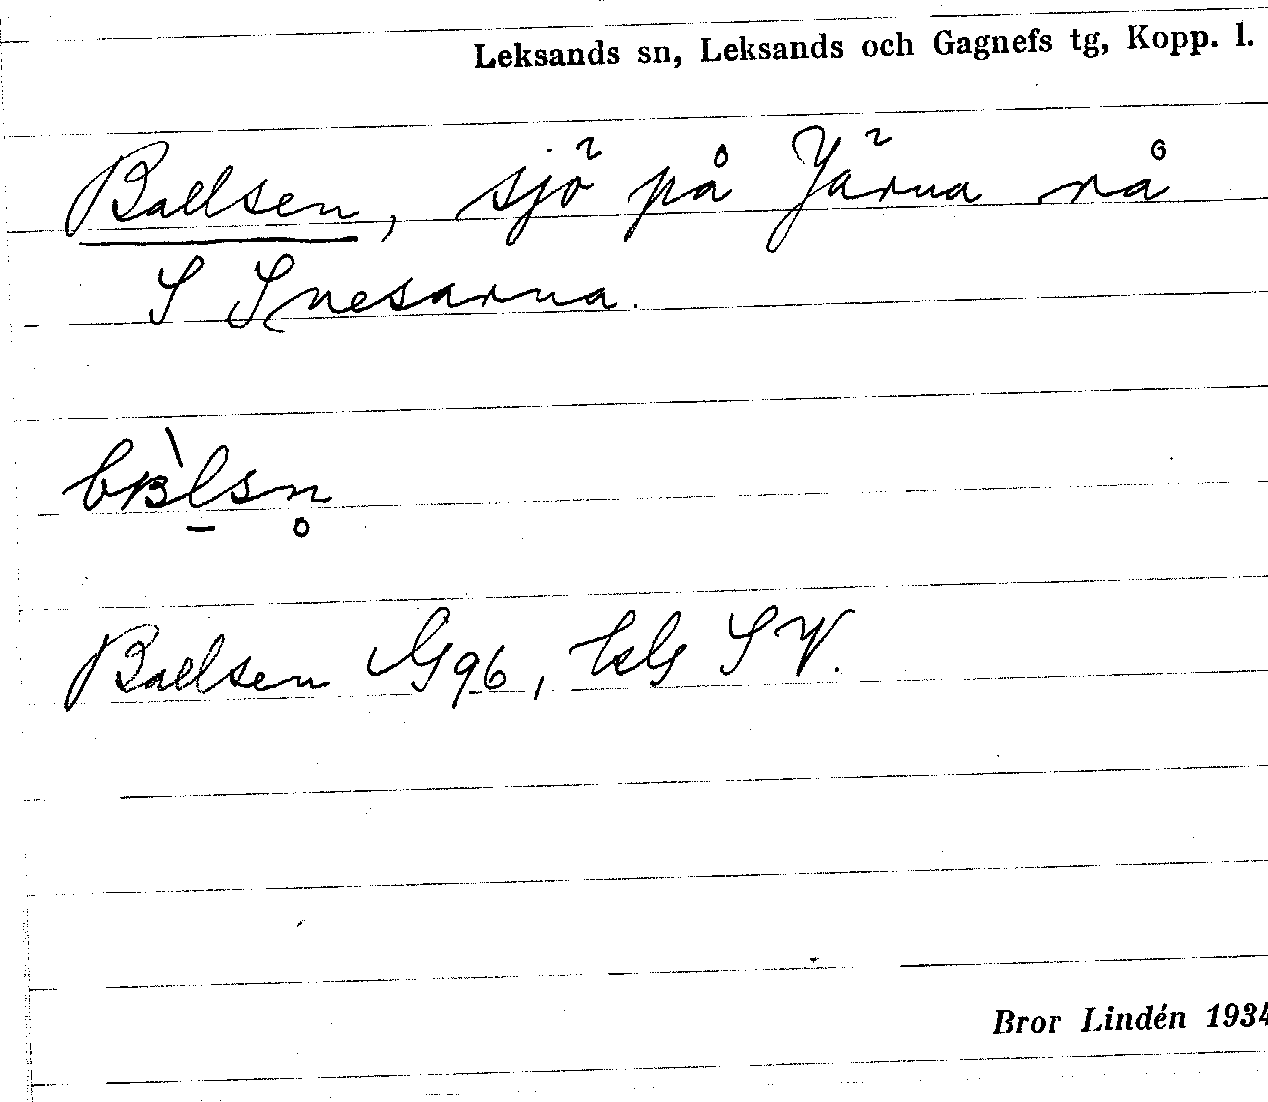 Leksands sn, Leksands och Gagnefs tg, Kopp. l.
Ballsen, sjö på Järna rå
S Snesarna.
Ballsen G96, bls SV.
Bror Lindén 1934